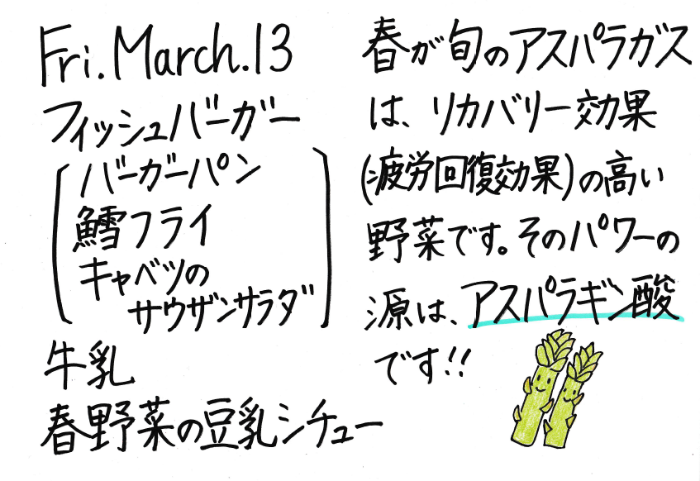 Fri. March. 13
フィッシュバーガー
バーガーパン
鱈フライ
キャベツの
サウザンサラダ
牛乳
春野菜の豆乳シチュー
春が旬のアスパラガス
は、リカバリー効果
(疲労回復効果)の高い
野菜です。そのパワーの
源は、アスパラギン酸
です!!